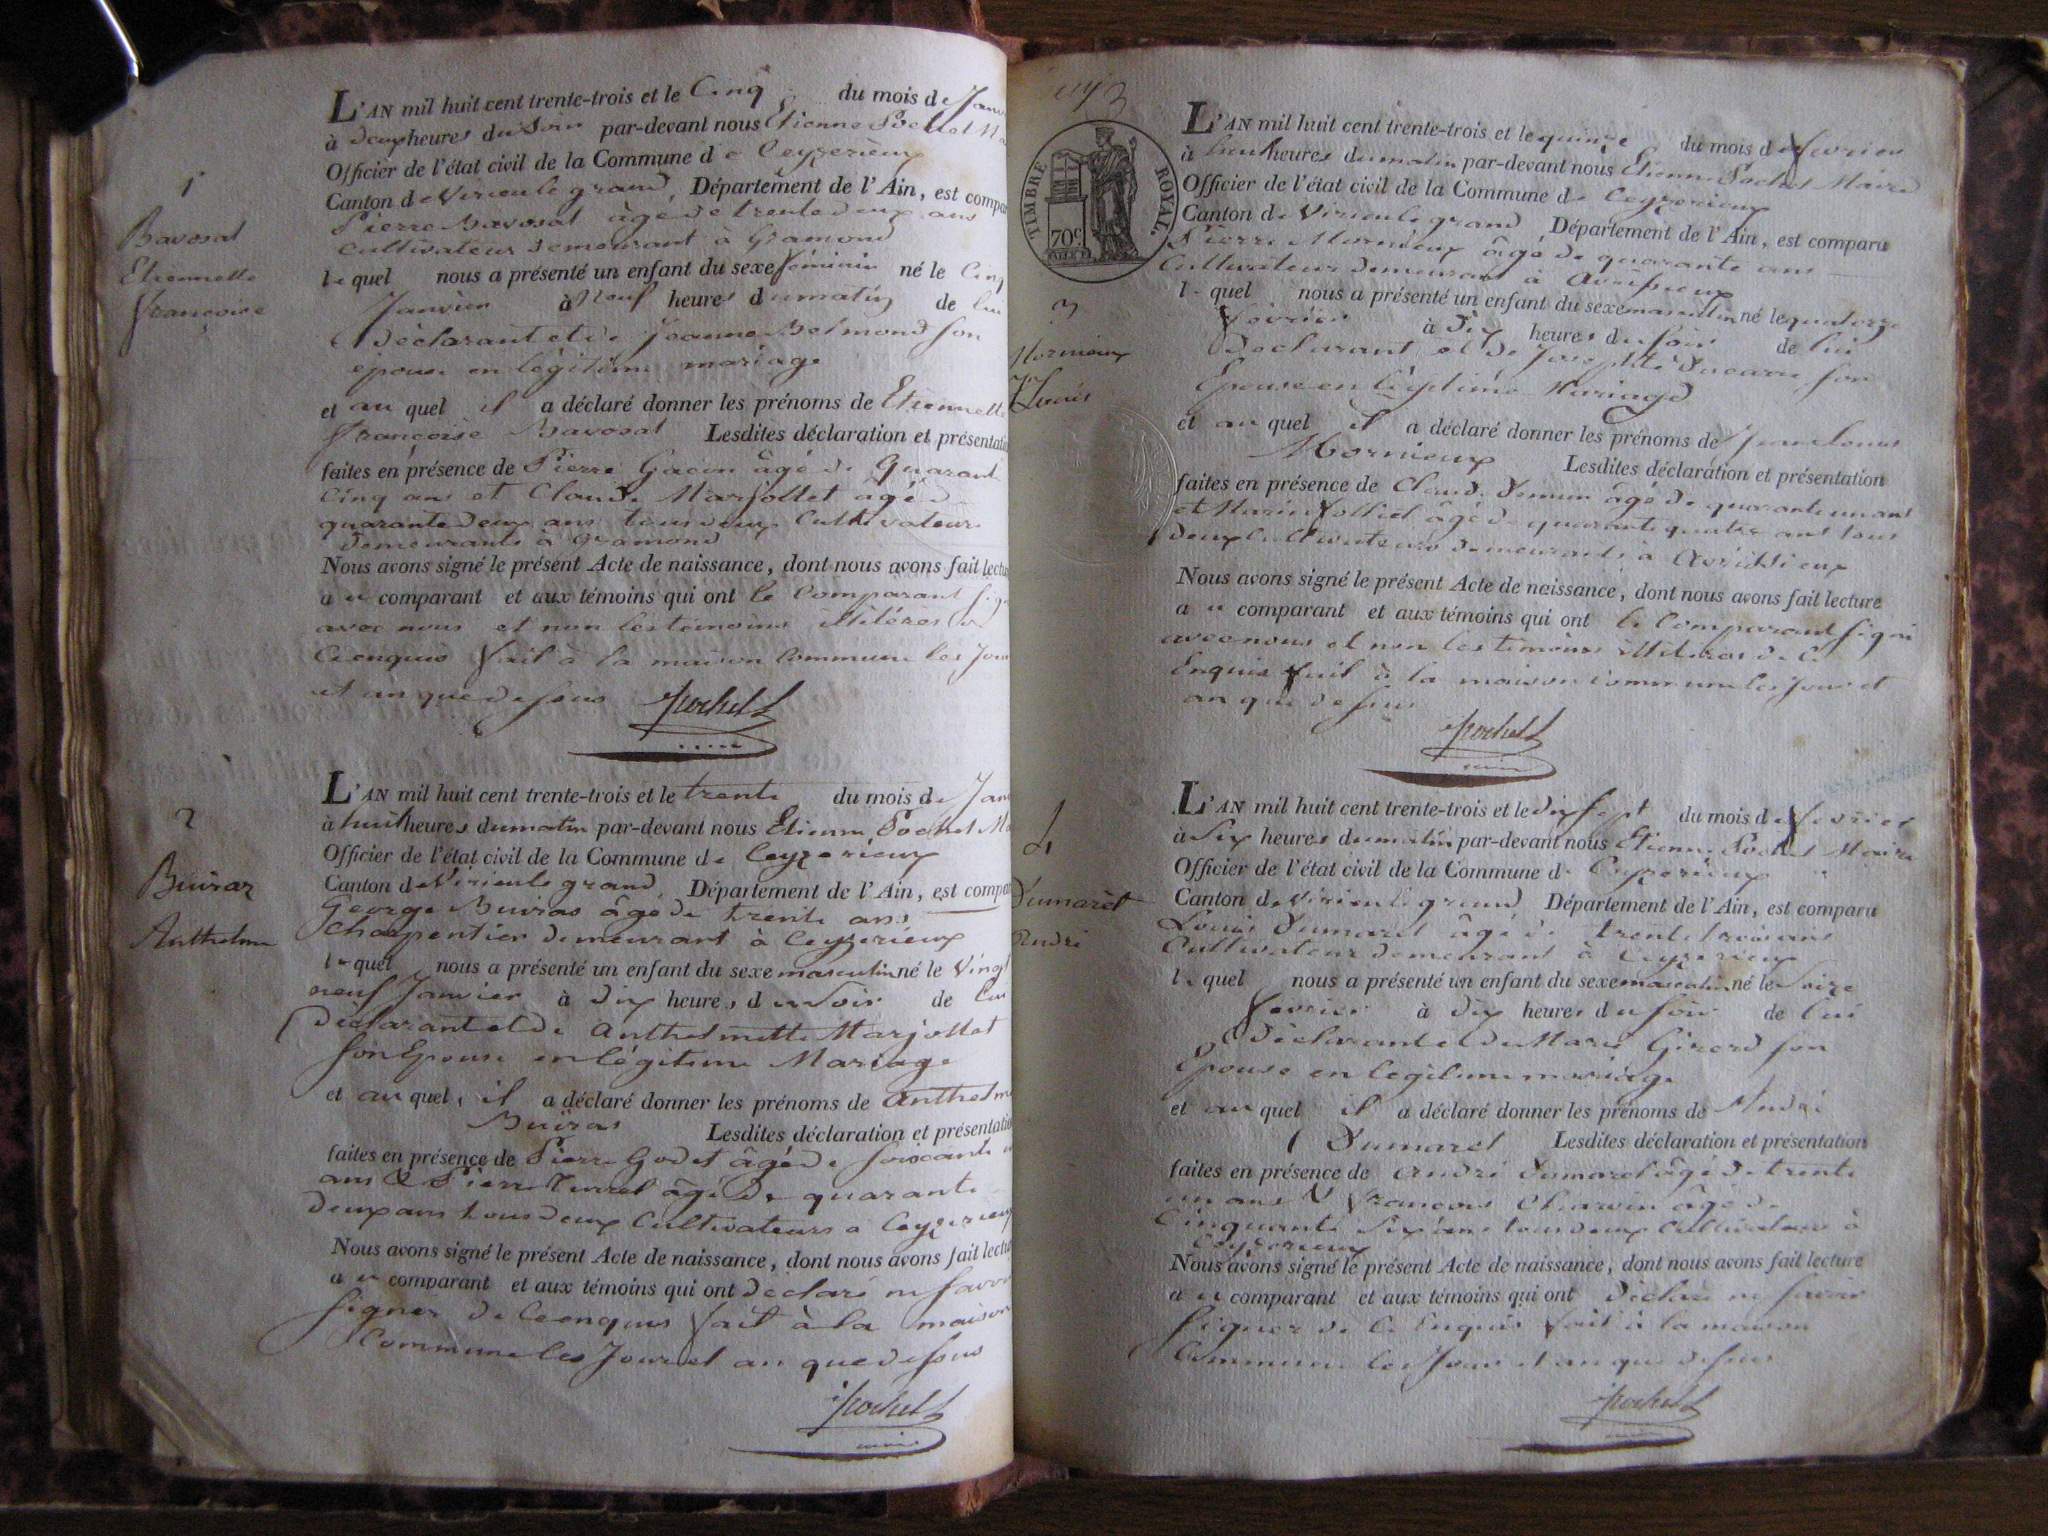 1
Bavosat
Etiennette
françoise
L'AN mil huit cent trente-trois et le Cinq du mois de Janv
à deux heures du Soir par-devant nous Etienne Pochet M
Officier de l'état civil de la Commune de Ceyzerieux
Canton de Virieu le grand, Département de l'Ain, est compar
Pierre Bavosat âgé de trente deux ans
Cultivateur demeurant à Gramond
lequel nous a présenté un enfant du sexe féminin né le Cinq
Janvier à Neuf heures du matin de lui
déclarant et de Jeanne Belmond son
epouse en légitime mariage
et au quel il a déclaré donner les prénoms de Etiennette
françoise Bavosat Lesdites déclaration et présentatio
faites en présence de Pierre Gacon âgé de quarante
Cinq ans et Claude Marjollet agé de
quarante deux ans tous deux Cultivateurs
demeurants à Gramond
Nous avons signé le présent Acte de naissance, dont nous avons fait lectu
au comparant et aux témoins qui ont le Comparant sign
avec nous et non les témoins illiterés de
Ce enquis fait à la maison Commune les Jour
et an que dessus Pochet
maire
2
Buiraz
Anthelme
L'AN mil huit cent trente-trois et le trente du mois de Janv
à huit heures du matin par-devant nous Etienne Pochet Ma
Officier de l'état civil de la Commune de Ceyzerieux
Canton de Virieu le grand, Département de l'Ain, est compar
George Buiras âgé de trente ans
Charpentier demeurant à Ceyzerieux
lequel nous a présenté un enfant du sexe masculin né le Vingt
neuf Janvier à dix heures du Soir de lui
déclarant et de Anthelmette Marjollet
son Epouse en légitime Mariage
et au quel il a déclaré donner les prénoms de Anthelme
Buiras Lesdites déclaration et présentatio
faites en présence de Pierre Godet âgé de soixante
ans & Pierre Turrel âgé de quarante
deux ans tous deux Cultivateurs à Ceyzerieux
Nous avons signé le présent Acte de naissance, dont nous avons fait lectu
au comparant et aux témoins qui ont déclaré ne savoir
signer de Ce enquis fait à la maison
Commune les Jour et an que dessus
Pochet
maire
3
TIMBRE ROYAL
70c
Mornieux
Jn Louis
L'AN mil huit cent trente-trois et le quinze du mois de fevrier
à huit heures du matin par-devant nous Etienne Pochet Maire
Officier de l'état civil de la Commune de Ceyzerieux
Canton de Virieu le grand Département de l'Ain, est comparu
Pierre Mornieux âgé de quarante ans
Cultivateur demeurant à Avrissieux
lequel nous a présenté un enfant du sexe masculin né le quatorze
fevrier à Dix heures du soir de lui
declarant et de Josephte Ducarre son
Epouse en légitime Mariage
et au quel il a déclaré donner les prénoms de Jean Louis
Mornieux Lesdites déclaration et présentation
faites en présence de Claude âgé de quarante un ans
et Marin âgé de quarante quatre ans tous
deux Cultivateurs demeurants à Avrissieux
Nous avons signé le présent Acte de naissance, dont nous avons fait lecture
au comparant et aux témoins qui ont le Comparant signé
avec nous et non les témoins illiteres de Ce
Enquis fait à la maison Commune les Jour et
an que dessus
Pochet
maire
4
Dumarêt
André
L'AN mil huit cent trente-trois et le dix sept du mois de fevrier
à Six heures du matin par-devant nous Etienne Pochet Maire
Officier de l'état civil de la Commune de Ceyzerieux
Canton de Virieu le grand Département de l'Ain, est comparu
Louis Dumaret âgé de trente trois ans
Cultivateur demeurant à Ceyzerieux
lequel nous a présenté un enfant du sexe masculin né le Seize
fevrier à Dix heures du soir de lui
déclarant et de Marie Girerd son
Epouse en légitime mariage
et au quel il a déclaré donner les prénoms de André
Dumaret Lesdites déclaration et présentation
faites en présence de André Dumaret âgé de trente
un ans & francois Charvin âgé de
Cinquante Six ans tous deux Cultivateurs à
Ceyzerieux
Nous avons signé le présent Acte de naissance, dont nous avons fait lecture
au comparant et aux témoins qui ont déclaré ne savoir
signer de Ce Enquis fait à la maison
Commune les Jour et an que dessus
Pochet
maire